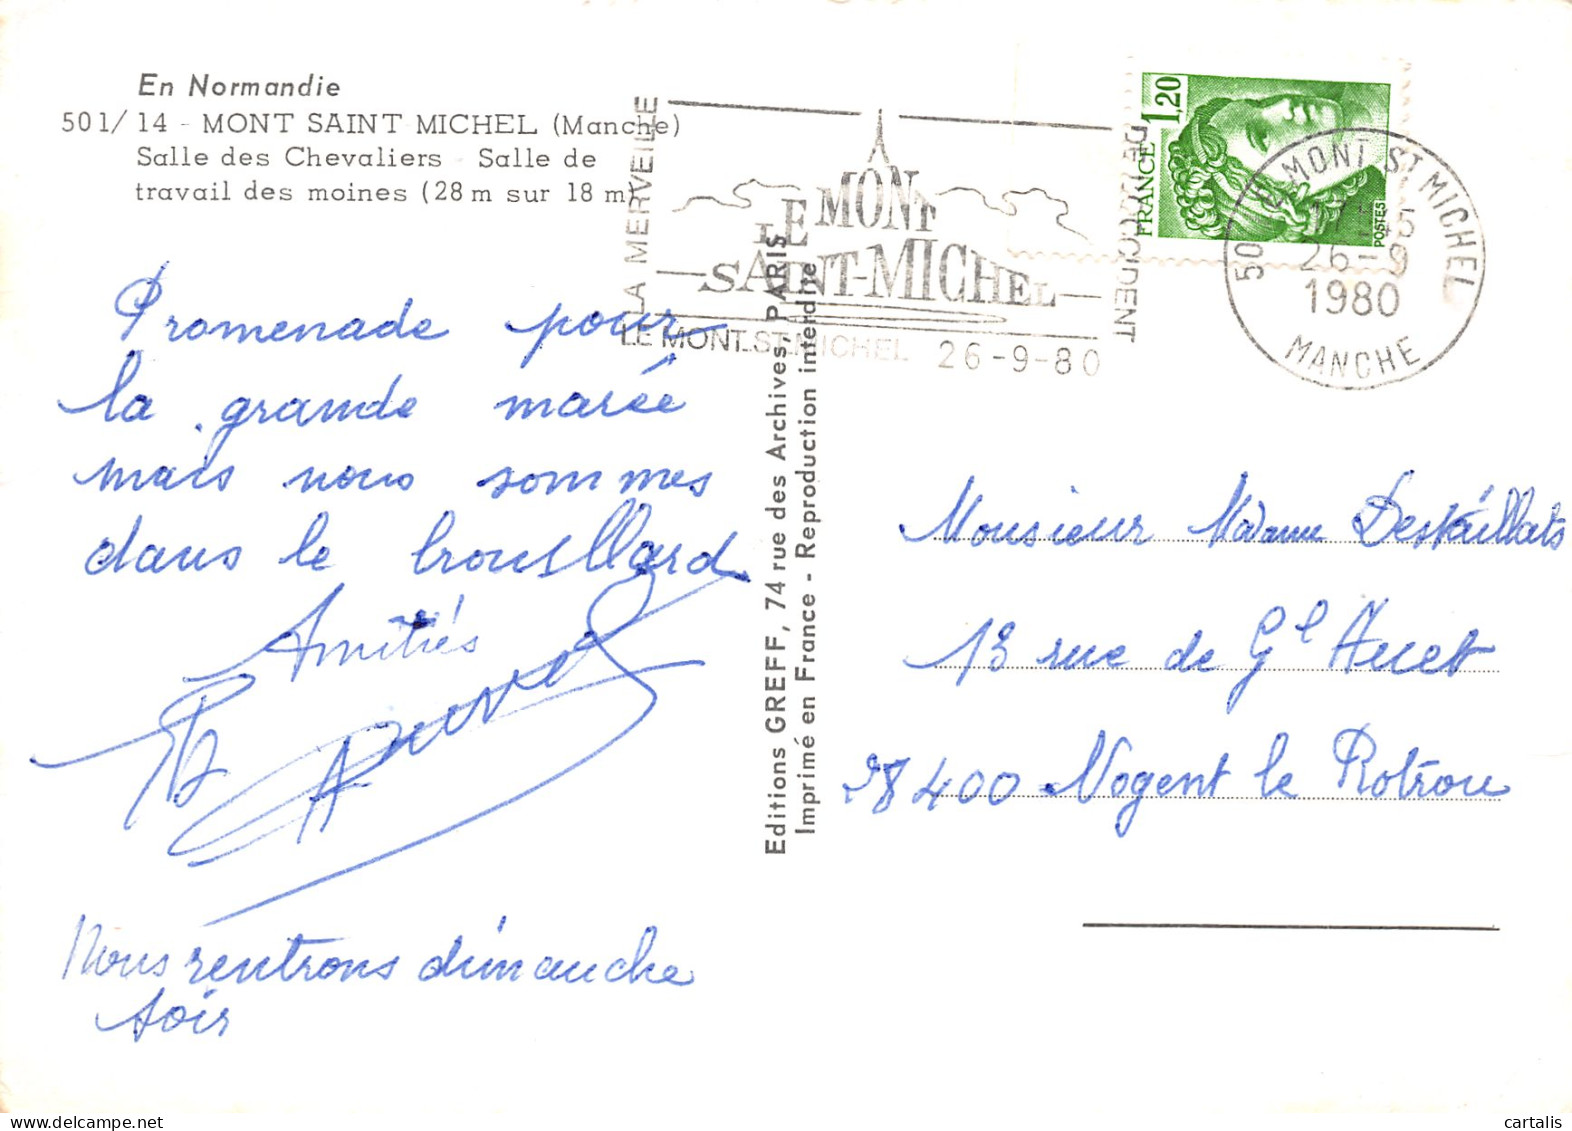 En Normandie
501/14 - MONT SAINT MICHEL (Manche)
Salle des Chevaliers Salle de
travail des moines (28 m sur 18 m)
LA MERVEILLE
LE MONT
SAINT-MICHEL
DE L'OCCIDENT
LE MONT ST MICHEL 26-9-80
1,20
FRANCE
POSTES
50 LE MONT ST MICHEL
26-9
1980
MANCHE
Promenade pour
la grande marée
mais nous sommes
dans le brouillard
Amitiés
Nous rentrons dimanche
soir
Editions GREFF, 74 rue des Archives, PARIS
Imprimé en France - Reproduction interdite
Monsieur Madame Destaillats
13 rue de Gl Huet
28400 Nogent le Rotrou
cartalis